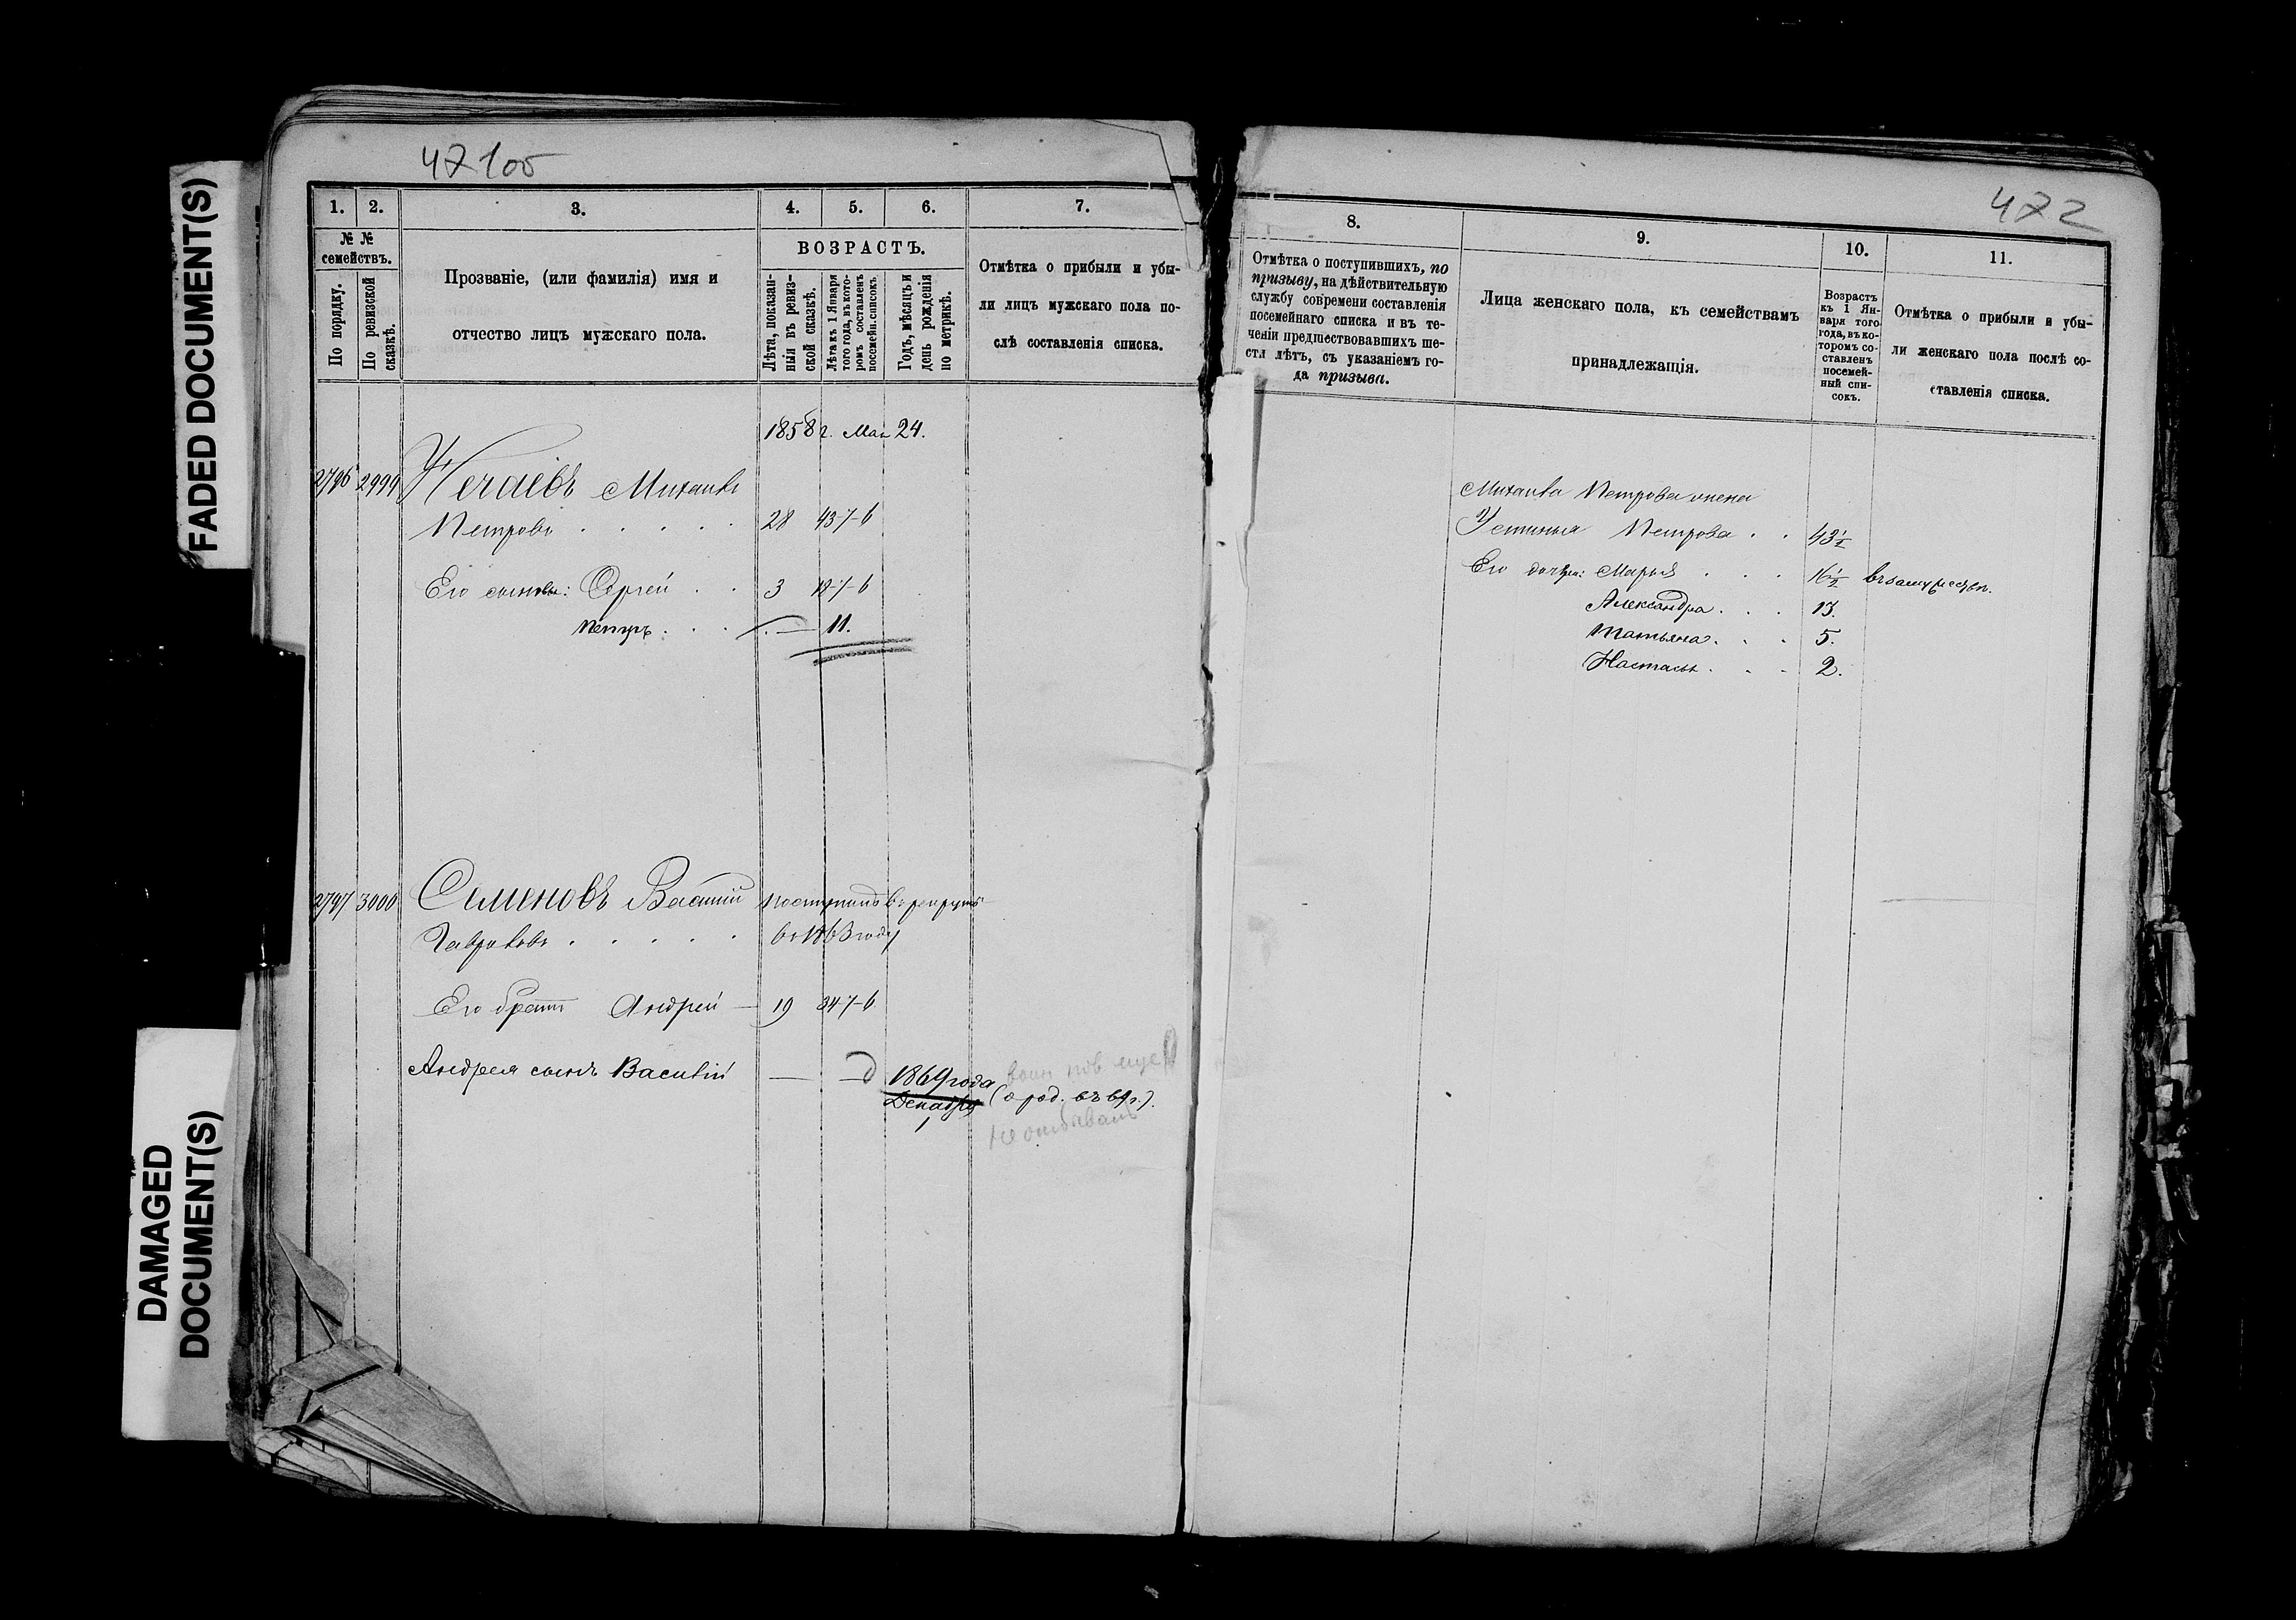 FADED DOCUMENT(S)
DAMAGED
DOCUMENT(S)
47 105
1. 2. 3. 4. 5. 6. 7.
№ №
семействъ.
По порядку.
По ревизской
сказкѣ.
Прозваніе, (или фамилія) имя и
отчество лицъ мужскаго пола.
ВОЗРАСТЪ.
Лѣта, показан-
ныя въ ревиз-
ской сказкѣ.
Лѣта къ 1 Января
того года, въ кото-
ромъ составленъ
посемейн. списокъ.
Годъ, мѣсяцъ и
день рожденія
по метрикѣ.
Отмѣтка о прибыли и убы-
ли лицъ мужскаго пола по-
слѣ составленія списка.
1858 г. Мая 24.
2796 2999 Нечаевъ Михаилъ
Петровъ . . . . . 28 43-7-6
Его сыновья: Сергей . . 3 18-7-6
Петръ . . . — 11.
2797 3000 Семеновъ Василій поступилъ въ рекруты
Гавриловъ . . . . . въ 1863 году
Его братъ Андрей — 19 34-7-6
Андрея сынъ Василій — — 1869 года
Декабря (о род. въ 69 г.).
1
не отбывалъ
472
8. 9. 10. 11.
Отмѣтка о поступившихъ, по
призыву, на дѣйствительную
службу современи составленія
посемейнаго списка и въ те-
ченіи предшествовавшихъ ше-
сти лѣтъ, съ указаніемъ го-
да призыва.
Лица женскаго пола, къ семействамъ
принадлежащія.
Возрастъ
къ 1 Ян-
варя того
года, въ ко-
торомъ со-
ставленъ
посемей-
ный спи-
сокъ.
Отмѣтка о прибыли и убы-
ли женскаго пола послѣ со-
ставленія списка.
Михаила Петрова жена
Устинья Петрова . . 43½
Его дочери: Марья . . . 16½ въ замужествѣ.
Александра . . . 13.
Татьяна . . . 5.
Настасья . . . 2.